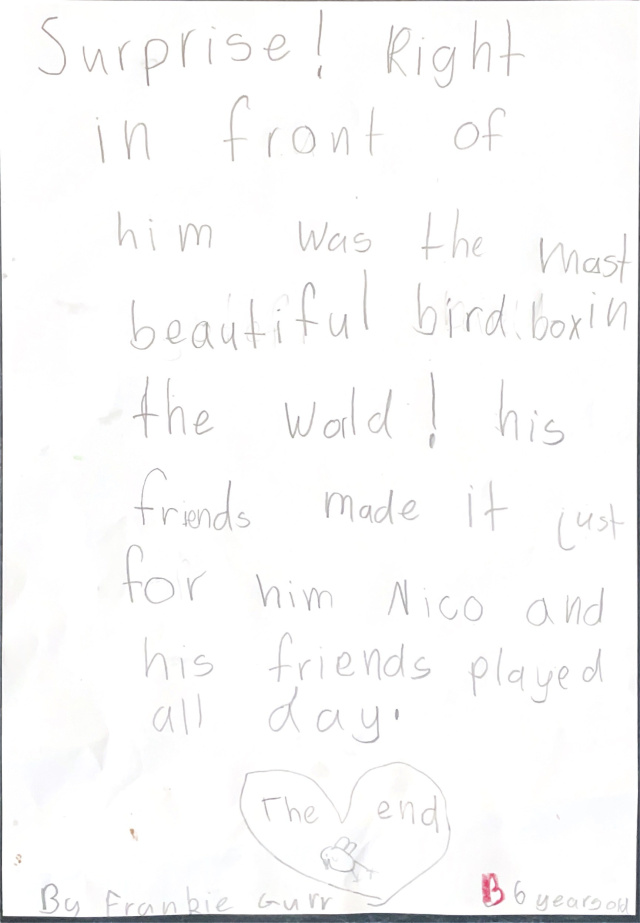 Surprise! Right
in front of
him was the mast
beautiful bird box in
the world! his
friends made it just
for him Nico and
his friends played
all day.
The end
By Frankie Gurr
B 6 years old